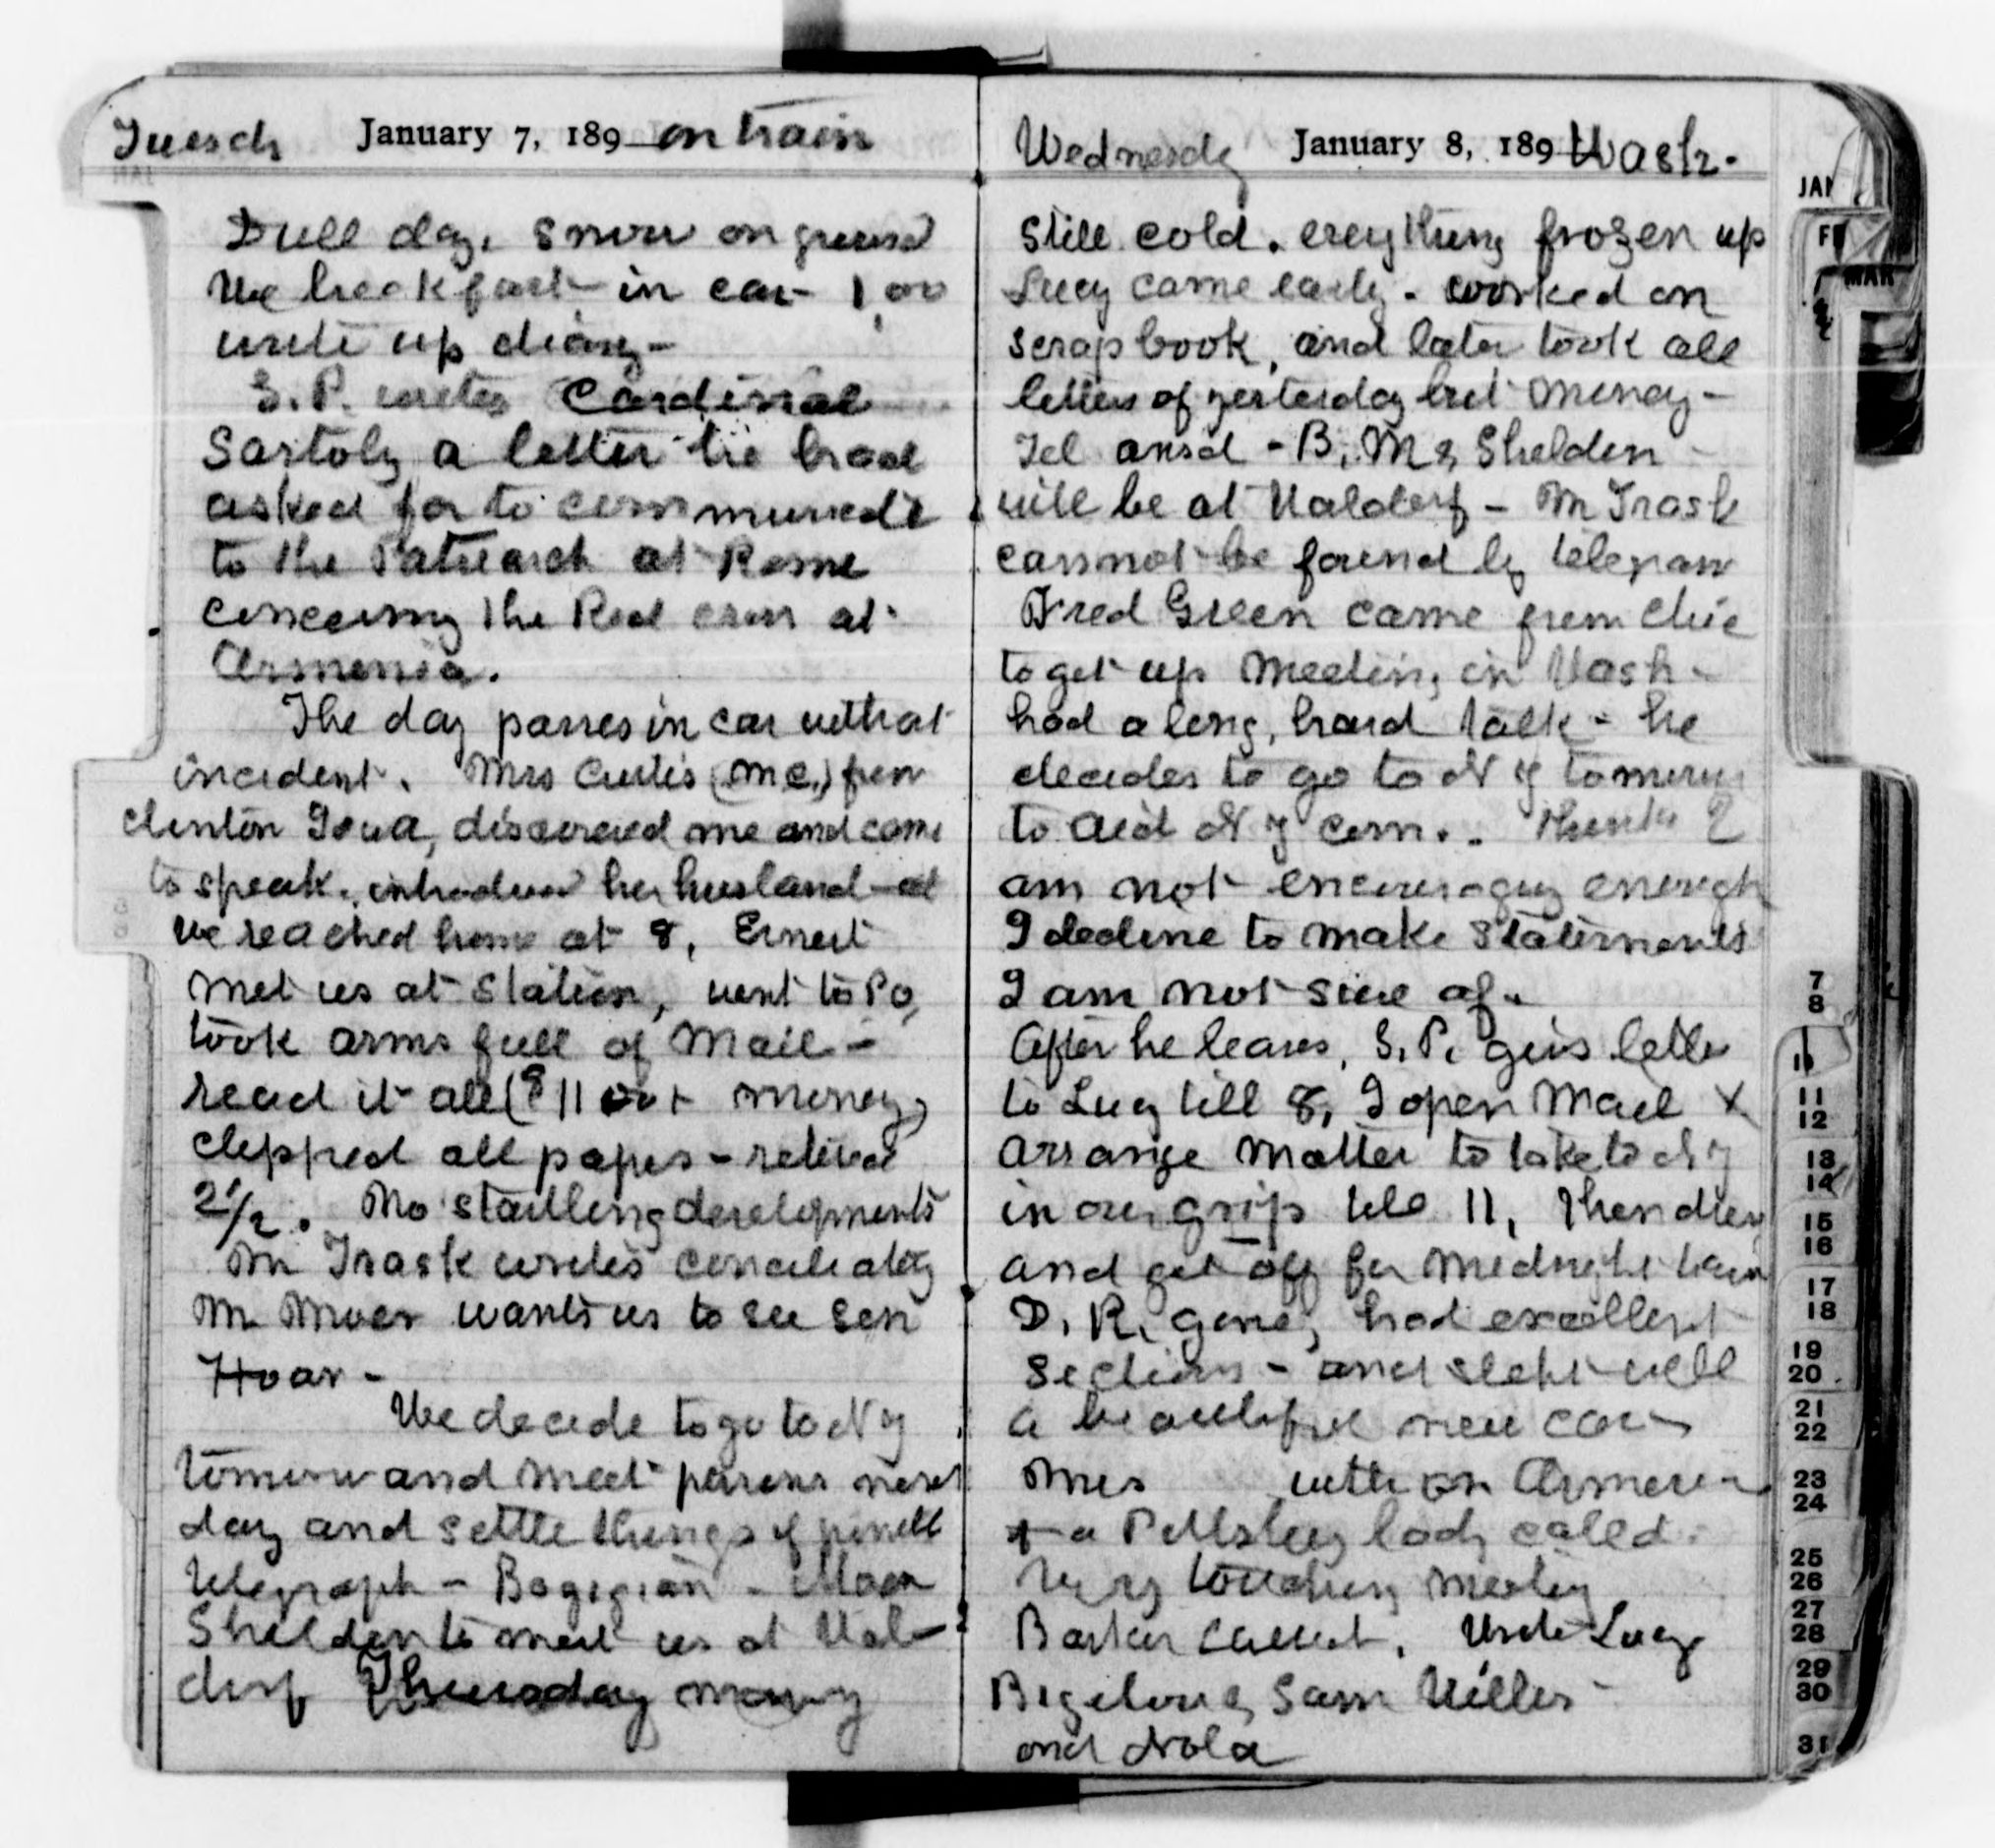 Tuesd January 7, 189 on train
Dull day. Snow on ground
We breakfast in car 1,00
write up diary -
G. P. writes Cardinal
Satoly a letter he had
asked for to communicate
to the Patriarch at Rome
concerning the Red cross at
Armenia.
The day passes in car without
incident. Mrs Curtis (M.C.) from
Clinton Iowa, discovered me and came
to speak, introduced her husband -
we reached home at 8, Ernest
met us at station, went to Po,
took arms full of Mail -
read it all money,
clipped all papers - retired
2 1/2. No startling developments
Mr Trask writes conciliatory
Mr wants us to see Sen
Hoar -
We decide to go to N Y
tomorow and meet persons next
day and settle things if possible
telegraph - Bagigian -
Shelden to meet us at Wal-
dorf Thursday morning
Wednesdy January 8, 189 Wash.
Still cold. everything frozen up
Lucy came early - worked on
scrap book, and later took all
letters of yesterday but money -
Tel ansd - B, M & Shelden
will be at Waldorf - Mr Trask
cannot be found by telegram
Fred Green came from Chic
to get up meeting in Wash -
had a long, hard talk - he
decides to go to N Y tomorow
to aid N Y com.. thinks I
am not encouraging enough
I decline to make statements
I am not sure of.
After he leaves, G. P. gives letters
to Lucy till 8, I open Mail &
arrange matter to take to N Y
in our grip till 11, then dress
and get off for midnight train
D. R. gone, had excellent
Sections - and slept well
a beautiful new car
Mrs with an Armenian
+ a Pittsburg lady called.
Very touching meeting
Barker called. Wrote Lucy
Bigelow & Sam Willis
and Nola
JAN
FE
MAR
7
8
10
11
12
13
14
15
16
17
18
19
20
21
22
23
24
25
26
27
28
29
30
31